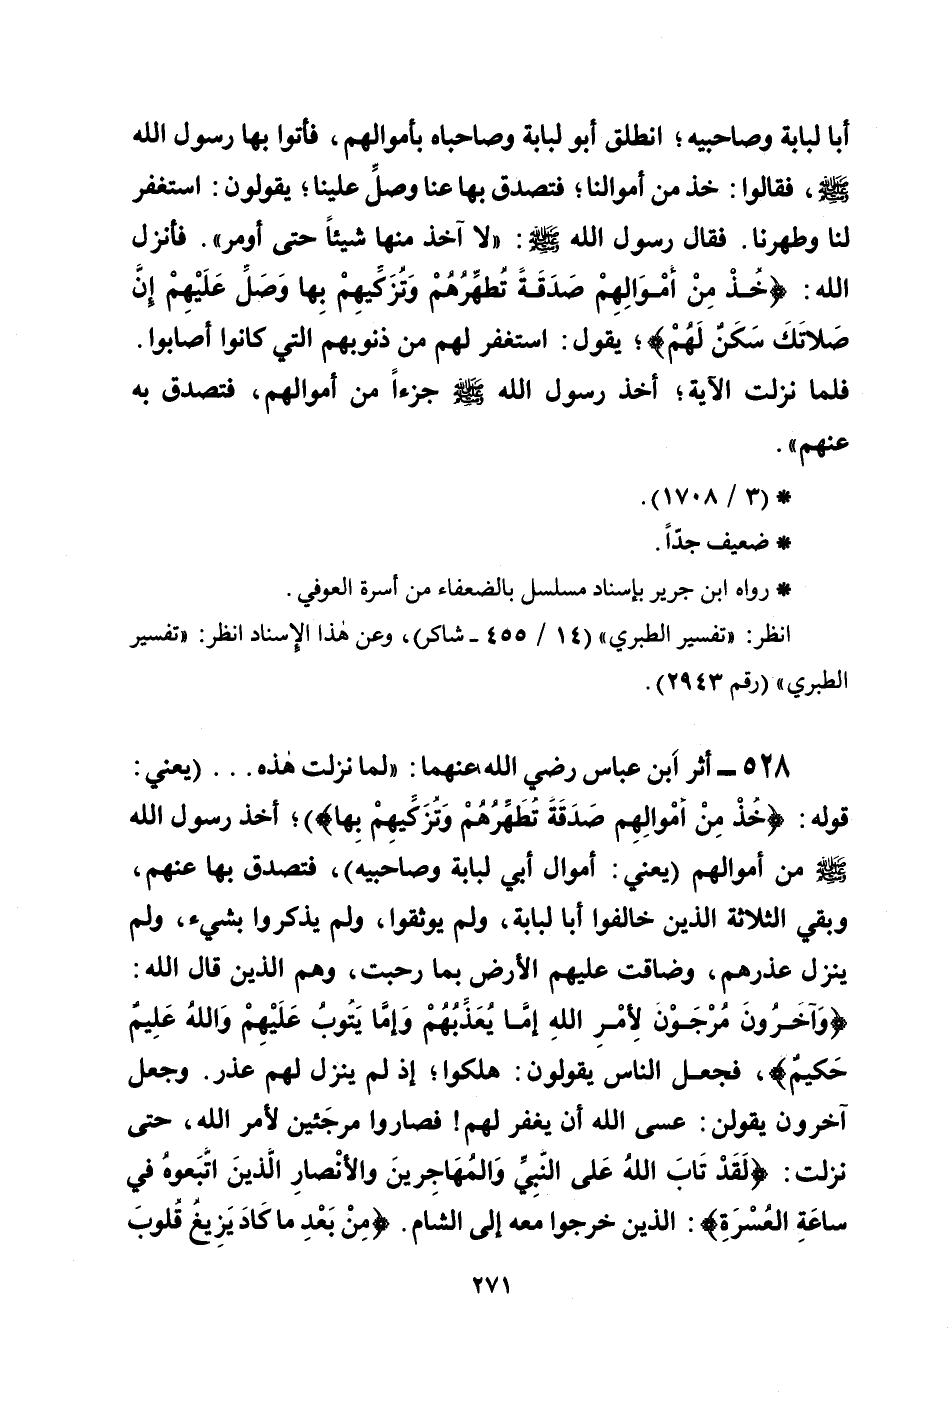 أبا لبابة وصاحبيه؛ انطلق أبو لبابة وصاحباه بأموالهم، فأتوا بها رسول الله
ﷺ، فقالوا: خذ من أموالنا؛ فتصدق بها عنا وصلِّ علينا؛ يقولون: استغفر
لنا وطهرنا. فقال رسول الله ﷺ: «لا آخذ منها شيئاً حتى أومر». فأنزل
الله: ﴿خُـذْ مِنْ أَمْـوَالِهِمْ صَدَقَـةً تُطَهِّرُهُمْ وَتُزَكِّيهِمْ بِها وَصَلِّ عَلَيْهِمْ إِنَّ
صَلاتَكَ سَكَنٌ لَهُمْ﴾؛ يقول: استغفر لهم من ذنوبهم التي كانوا أصابوا.
فلما نزلت الآية؛ أخذ رسول الله ﷺ جزءاً من أموالهم، فتصدق به
عنهم».
* (٣ / ١٧٠٨).
* ضعيف جدّاً.
* رواه ابن جرير بإسناد مسلسل بالضعفاء من أسرة العوفي.
انظر: «تفسير الطبري» (١٤ / ٤٥٥ ـ شاكر)، وعن هٰذا الإِسناد انظر: «تفسير
الطبري» (رقم ٢٩٤٣).
٥٢٨ ـ أثر ابن عباس رضي الله عنهما: «لما نزلت هٰذه... (يعني:
قوله: ﴿خُذْ مِنْ أَمْوالِهِم صَدَقَةً تُطَهِّرُهُمْ وَتُزَكِّيهِمْ بِها﴾)؛ أخذ رسول الله
ﷺ من أموالهم (يعني: أموال أبي لبابة وصاحبيه)، فتصدق بها عنهم،
وبقي الثلاثة الذين خالفوا أبا لبابة، ولم يوثقوا، ولم يذكروا بشيء، ولم
ينزل عذرهم، وضاقت عليهم الأرض بما رحبت، وهم الذين قال الله:
﴿وَآخَـرُونَ مُرْجَـوْنَ لِأَمْـرِ اللهِ إِمَّـا يُعَذِّبُهُمْ وَإِمَّا يَتُوبُ عَلَيْهِمْ وَاللهُ عَلِيمٌ
حَكيمٌ﴾، فجعـل الناس يقولون: هلكوا؛ إذ لم ينزل لهم عذر. وجعل
آخرون يقولن: عسى الله أن يغفر لهم! فصاروا مرجَئين لأمر الله، حتى
نزلت: ﴿لَقَدْ تَابَ اللهُ عَلى النَّبِيِّ وَالمُهَاجِرينَ والأنْصارِ الَّذينَ اتَّبَعوهُ في
ساعَةِ العُسْرَةِ﴾: الذين خرجوا معه إلى الشام. ﴿مِنْ بَعْدِ ما كَادَ يَزِيغُ قُلوبَ
٢٧١